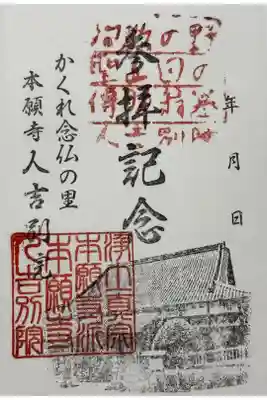 年 月 日
參拝記念
かくれ念仏の里
本願寺 人吉別院
浄土真宗
本願寺派
本願寺
人吉別院